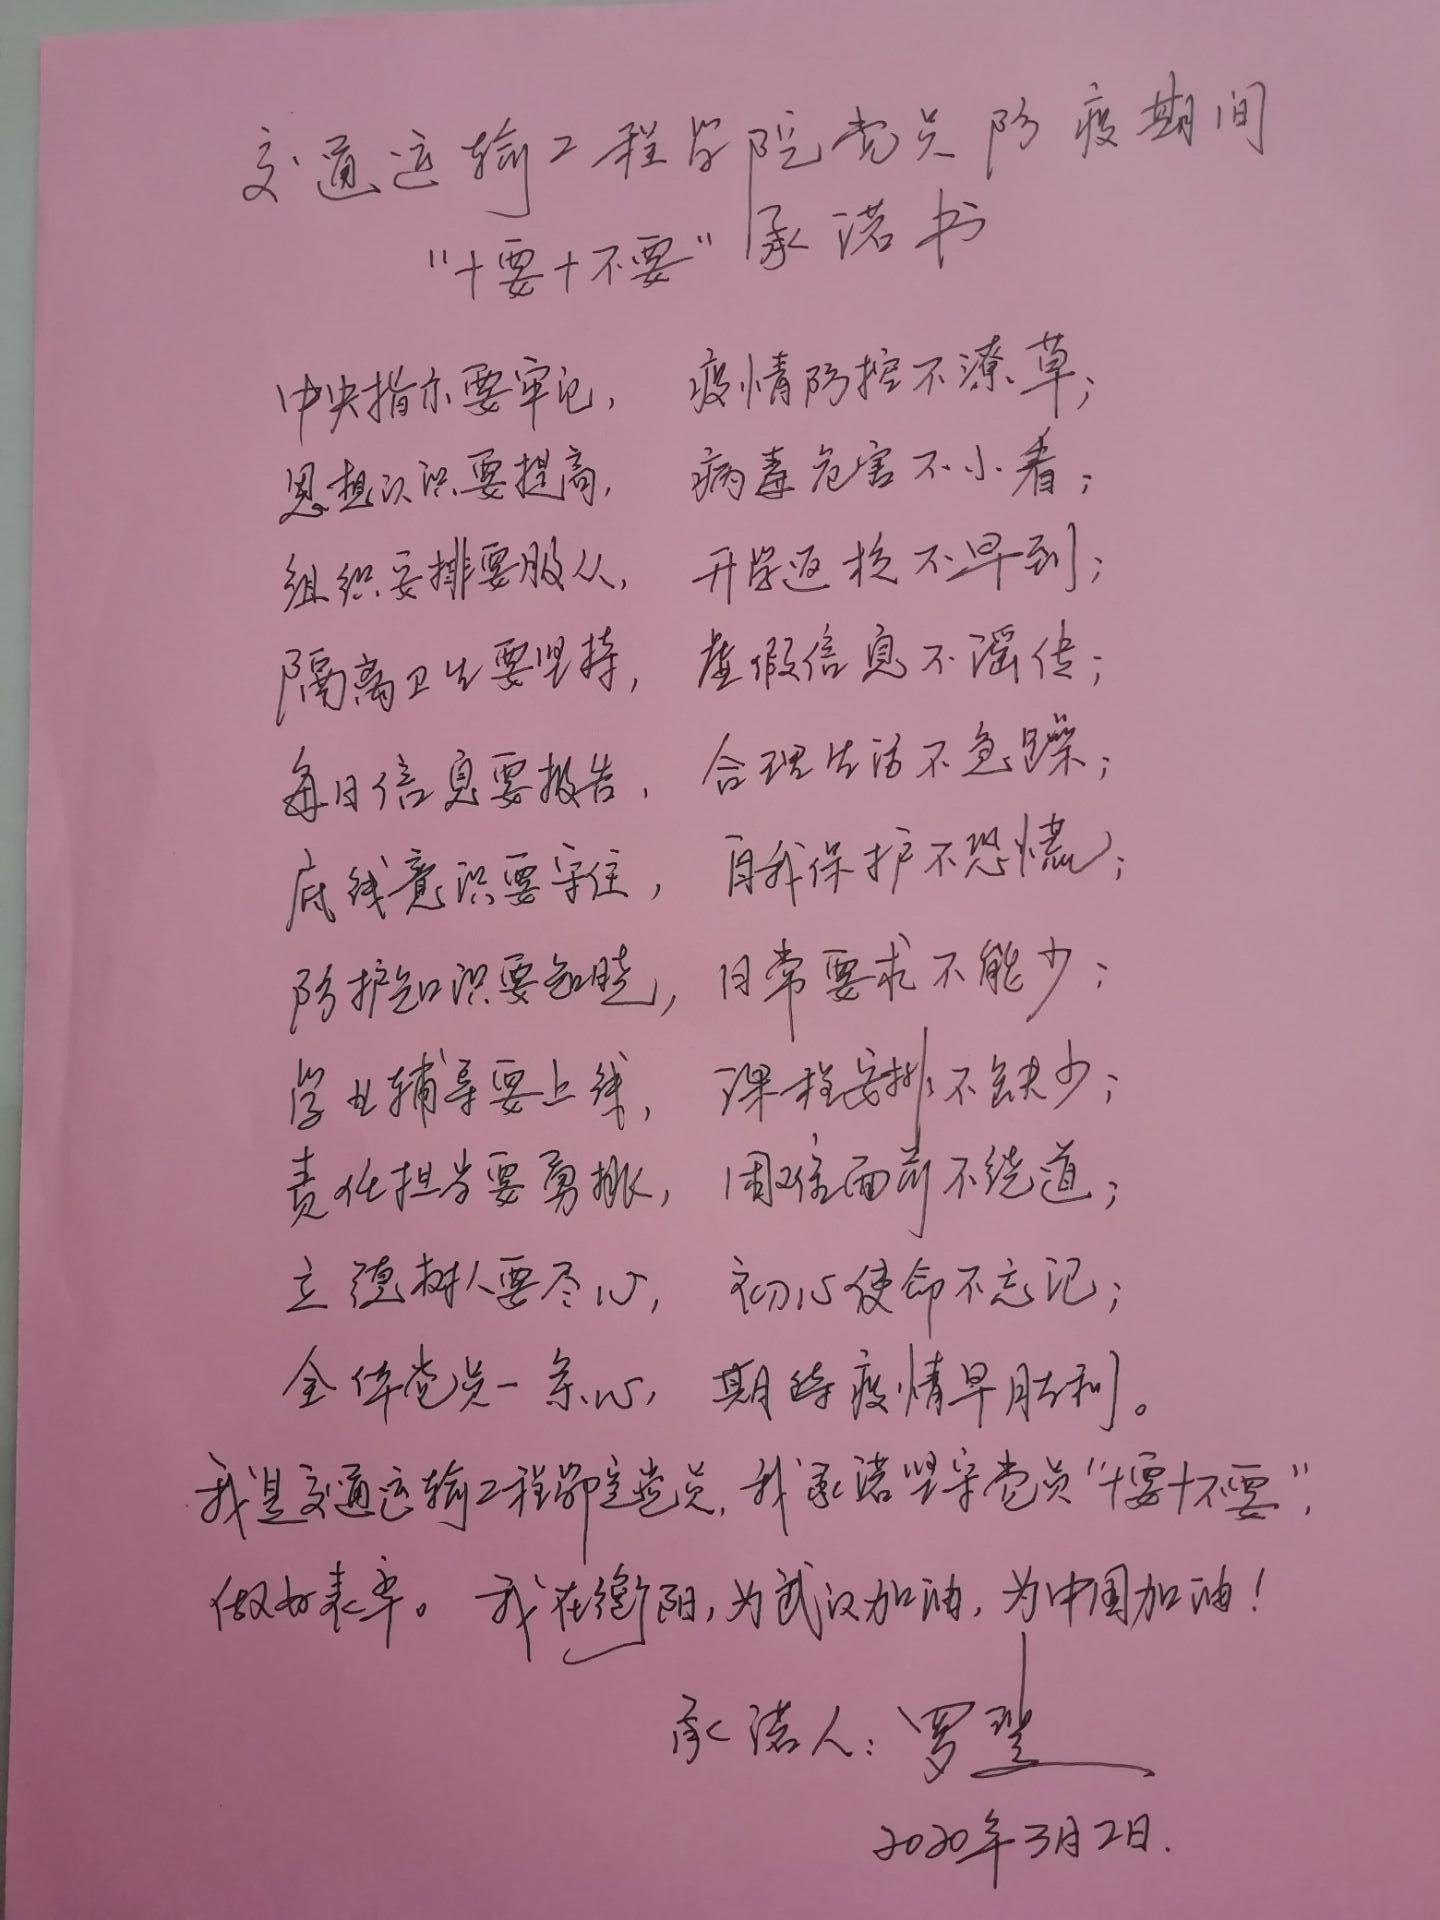 交通运输工程学院党员防疫期间
“十要十不要”承诺书
中央指示要牢记， 疫情防控不潦草；
思想认识要提高， 病毒危害不小看；
组织安排要服从， 开学返校不早到；
隔离卫生要坚持， 虚假信息不谣传；
每日信息要报告， 合理生活不急躁；
底线意识要守住， 自我保护不恐慌；
防护知识要知晓， 日常要求不能少；
学业辅导要上线， 课程安排不缺少；
责任担当要勇挑， 困难面前不绕道；
立德树人要尽心， 初心使命不忘记；
全体党员一条心， 期待疫情早胜利。
我是交通运输工程学院党员，我承诺坚守党员“十要十不要”，
做好表率。我在衡阳，为武汉加油，为中国加油！
承诺人：罗
2020年3月2日.